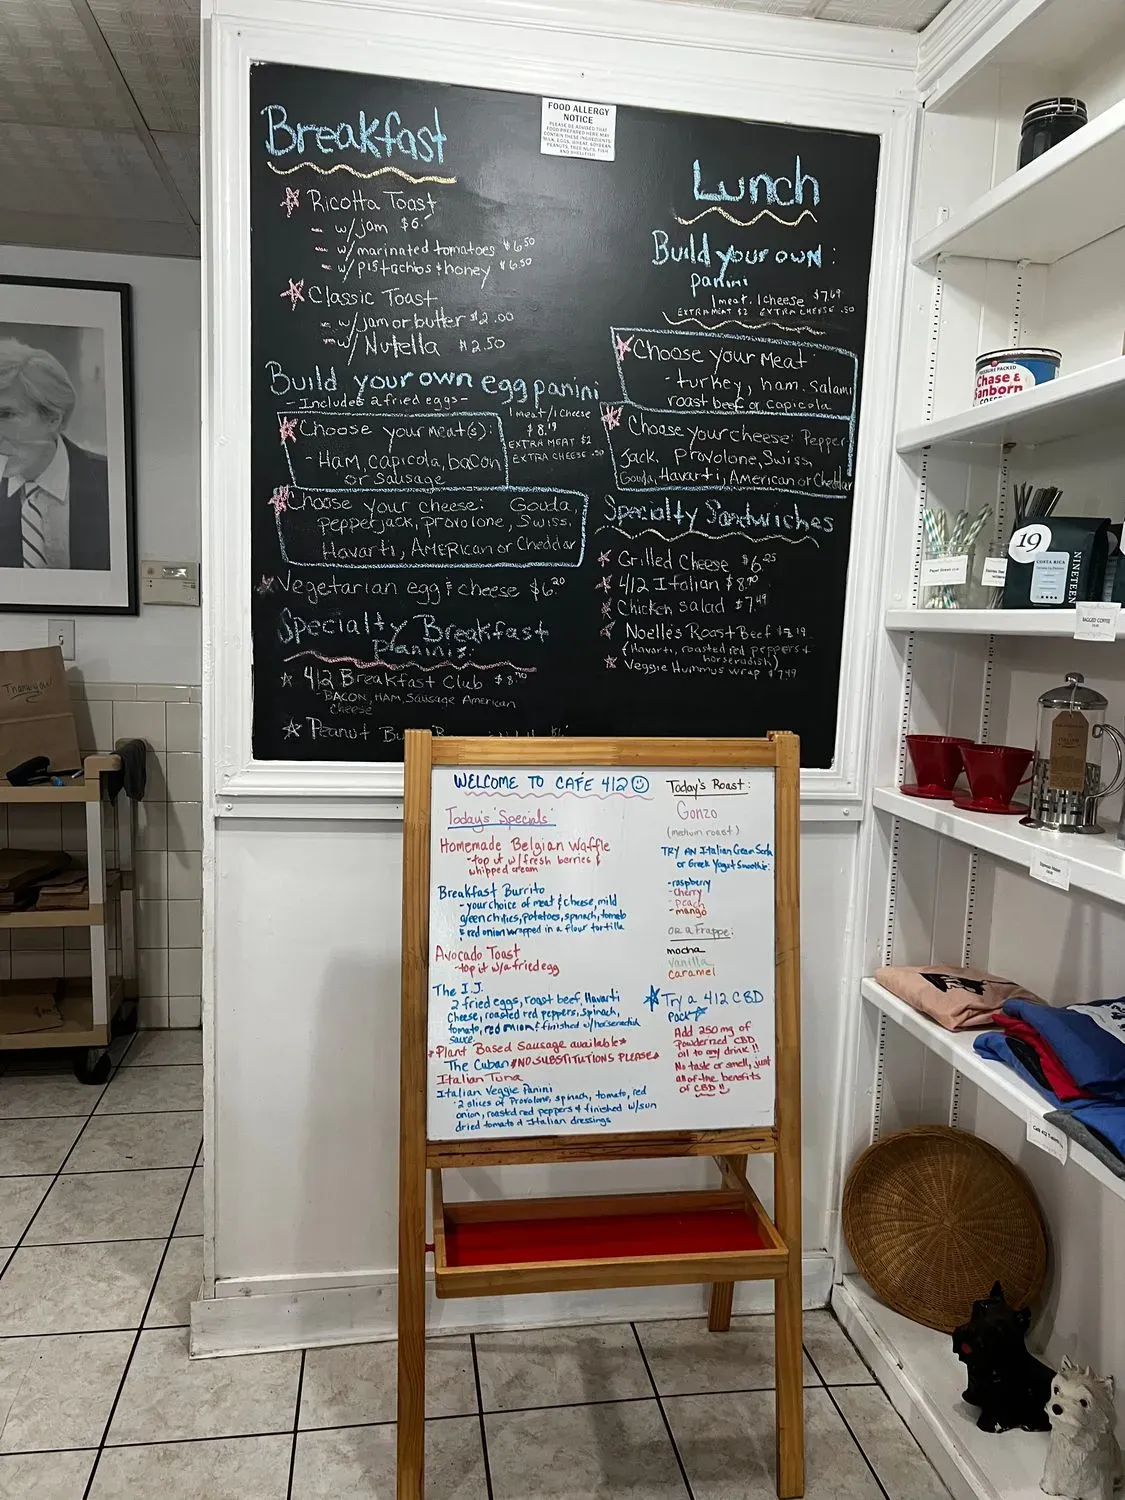 FOOD ALLERGY
NOTICE
PLEASE BE ADVISED THAT
FOOD PREPARED HERE MAY
CONTAIN THESE INGREDIENTS:
MILK, EGGS, WHEAT, SOYBEAN,
PEANUTS, TREE NUTS, FISH
AND SHELLFISH
Breakfast
Ricotta Toast
- w/jam $6.
- w/marinated tomatoes $6.50
- w/pistachios & honey $6.50
Classic Toast
- w/jam or butter $2.00
- w/ Nutella $2.50
Build your own egg panini
- Includes 2 fried eggs -
1 meat/1 cheese
EXTRA MEAT $2
EXTRA CHEESE .50
Choose your meat(s):
- Ham, capicola, bacon
or sausage
Choose your cheese: Gouda,
pepperjack, provolone, Swiss,
Havarti, American or Cheddar
Vegetarian egg & cheese $6.20
Specialty Breakfast
Paninis:
412 Breakfast Club
BACON, HAM, Sausage American
cheese
Peanut
Lunch
Build your own:
panini
1 meat, 1 cheese $7.69
EXTRA MEAT $2 EXTRA CHEESE .50
Choose your Meat:
- turkey, ham, salami
roast beef or capicola
Choose your cheese: Pepper
Jack, Provolone, Swiss,
Gouda, Havarti, American or Cheddar
Specialty Sandwiches
Grilled Cheese $6.25
412 Italian
Chicken salad $7.49
Noelle's Roast Beef
(Havarti, roasted red peppers +
horseradish)
Veggie Hummus wrap $7.49
WELCOME TO CAFÉ 412
Today's Specials
Homemade Belgian Waffle
- top it w/fresh berries &
whipped cream
Breakfast Burrito
- your choice of meat & cheese, mild
green chilies, potatoes, spinach, tomato
& red onion wrapped in a flour tortilla
Avocado Toast
- top it w/a fried egg
The I.J.
2 fried eggs, roast beef, Havarti
cheese, roasted red peppers, spinach,
tomato, red onion & finished w/horseradish
sauce
*Plant Based Sausage available*
The Cuban *NO SUBSTITUTIONS PLEASE*
Italian Tuna
Italian Veggie Panini
- 2 slices of Provolone, spinach, tomato, red
onion, roasted red peppers & finished w/sun
dried tomato & Italian dressings
Today's Roast:
Gonzo
(medium roast)
TRY AN Italian Cream Soda
or Greek Yogurt Smoothie:
- raspberry
- cherry
- peach
- mango
OR a Frappe:
mocha
vanilla
caramel
Try a 412 CBD
Pack
Add 250 mg of
powderized CBD
oil to any drink!!
No taste or smell, just
all of the benefits
of CBD!!
Thank you!
PRESSURE PACKED
Chase &
Sanborn
19
COSTA RICA
NINETEEN
BAGGED COFFEE